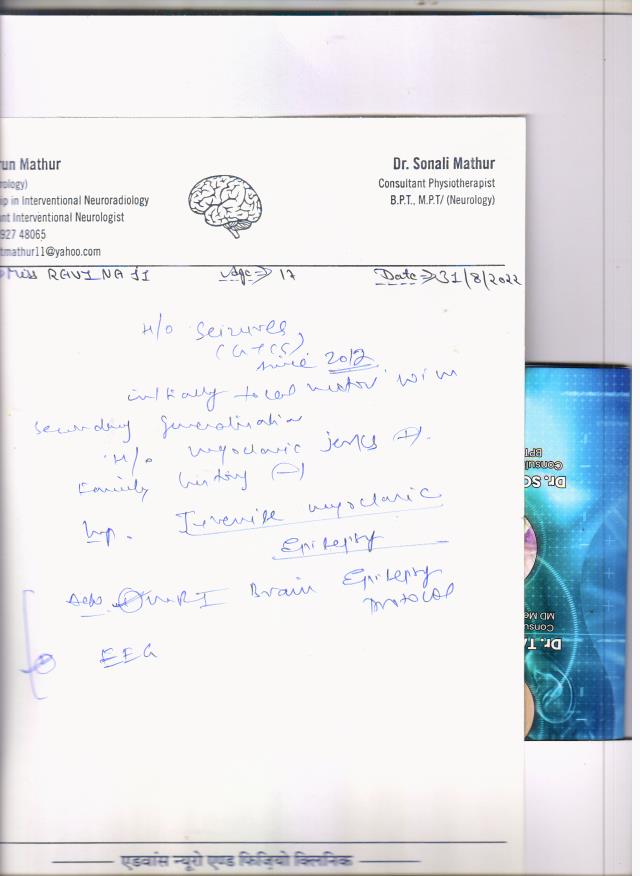 run Mathur
rology)
ip in Interventional Neuroradiology
nt Interventional Neurologist
927 48065
tmathur11@yahoo.com
Dr. Sonali Mathur
Consultant Physiotherapist
B.P.T., M.P.T/ (Neurology)
Miss RAVINA JI Age⇒ 17 Date⇒31/8/2022
H/o Seizures,
(GTCS)
since 2012
initially focal motor with
secondary generalisation
H/o. myoclonic jerks (+).
Family history (-)
Imp. Juvenile myoclonic
Epilepsy
Adv. ① MRI Brain Epilepsy
Protocol
② EEG
एडवांस न्यूरो एण्ड फिजियो क्लिनिक
Dr. SO
Consul
BPT
Dr. TA
Consu
MD Me